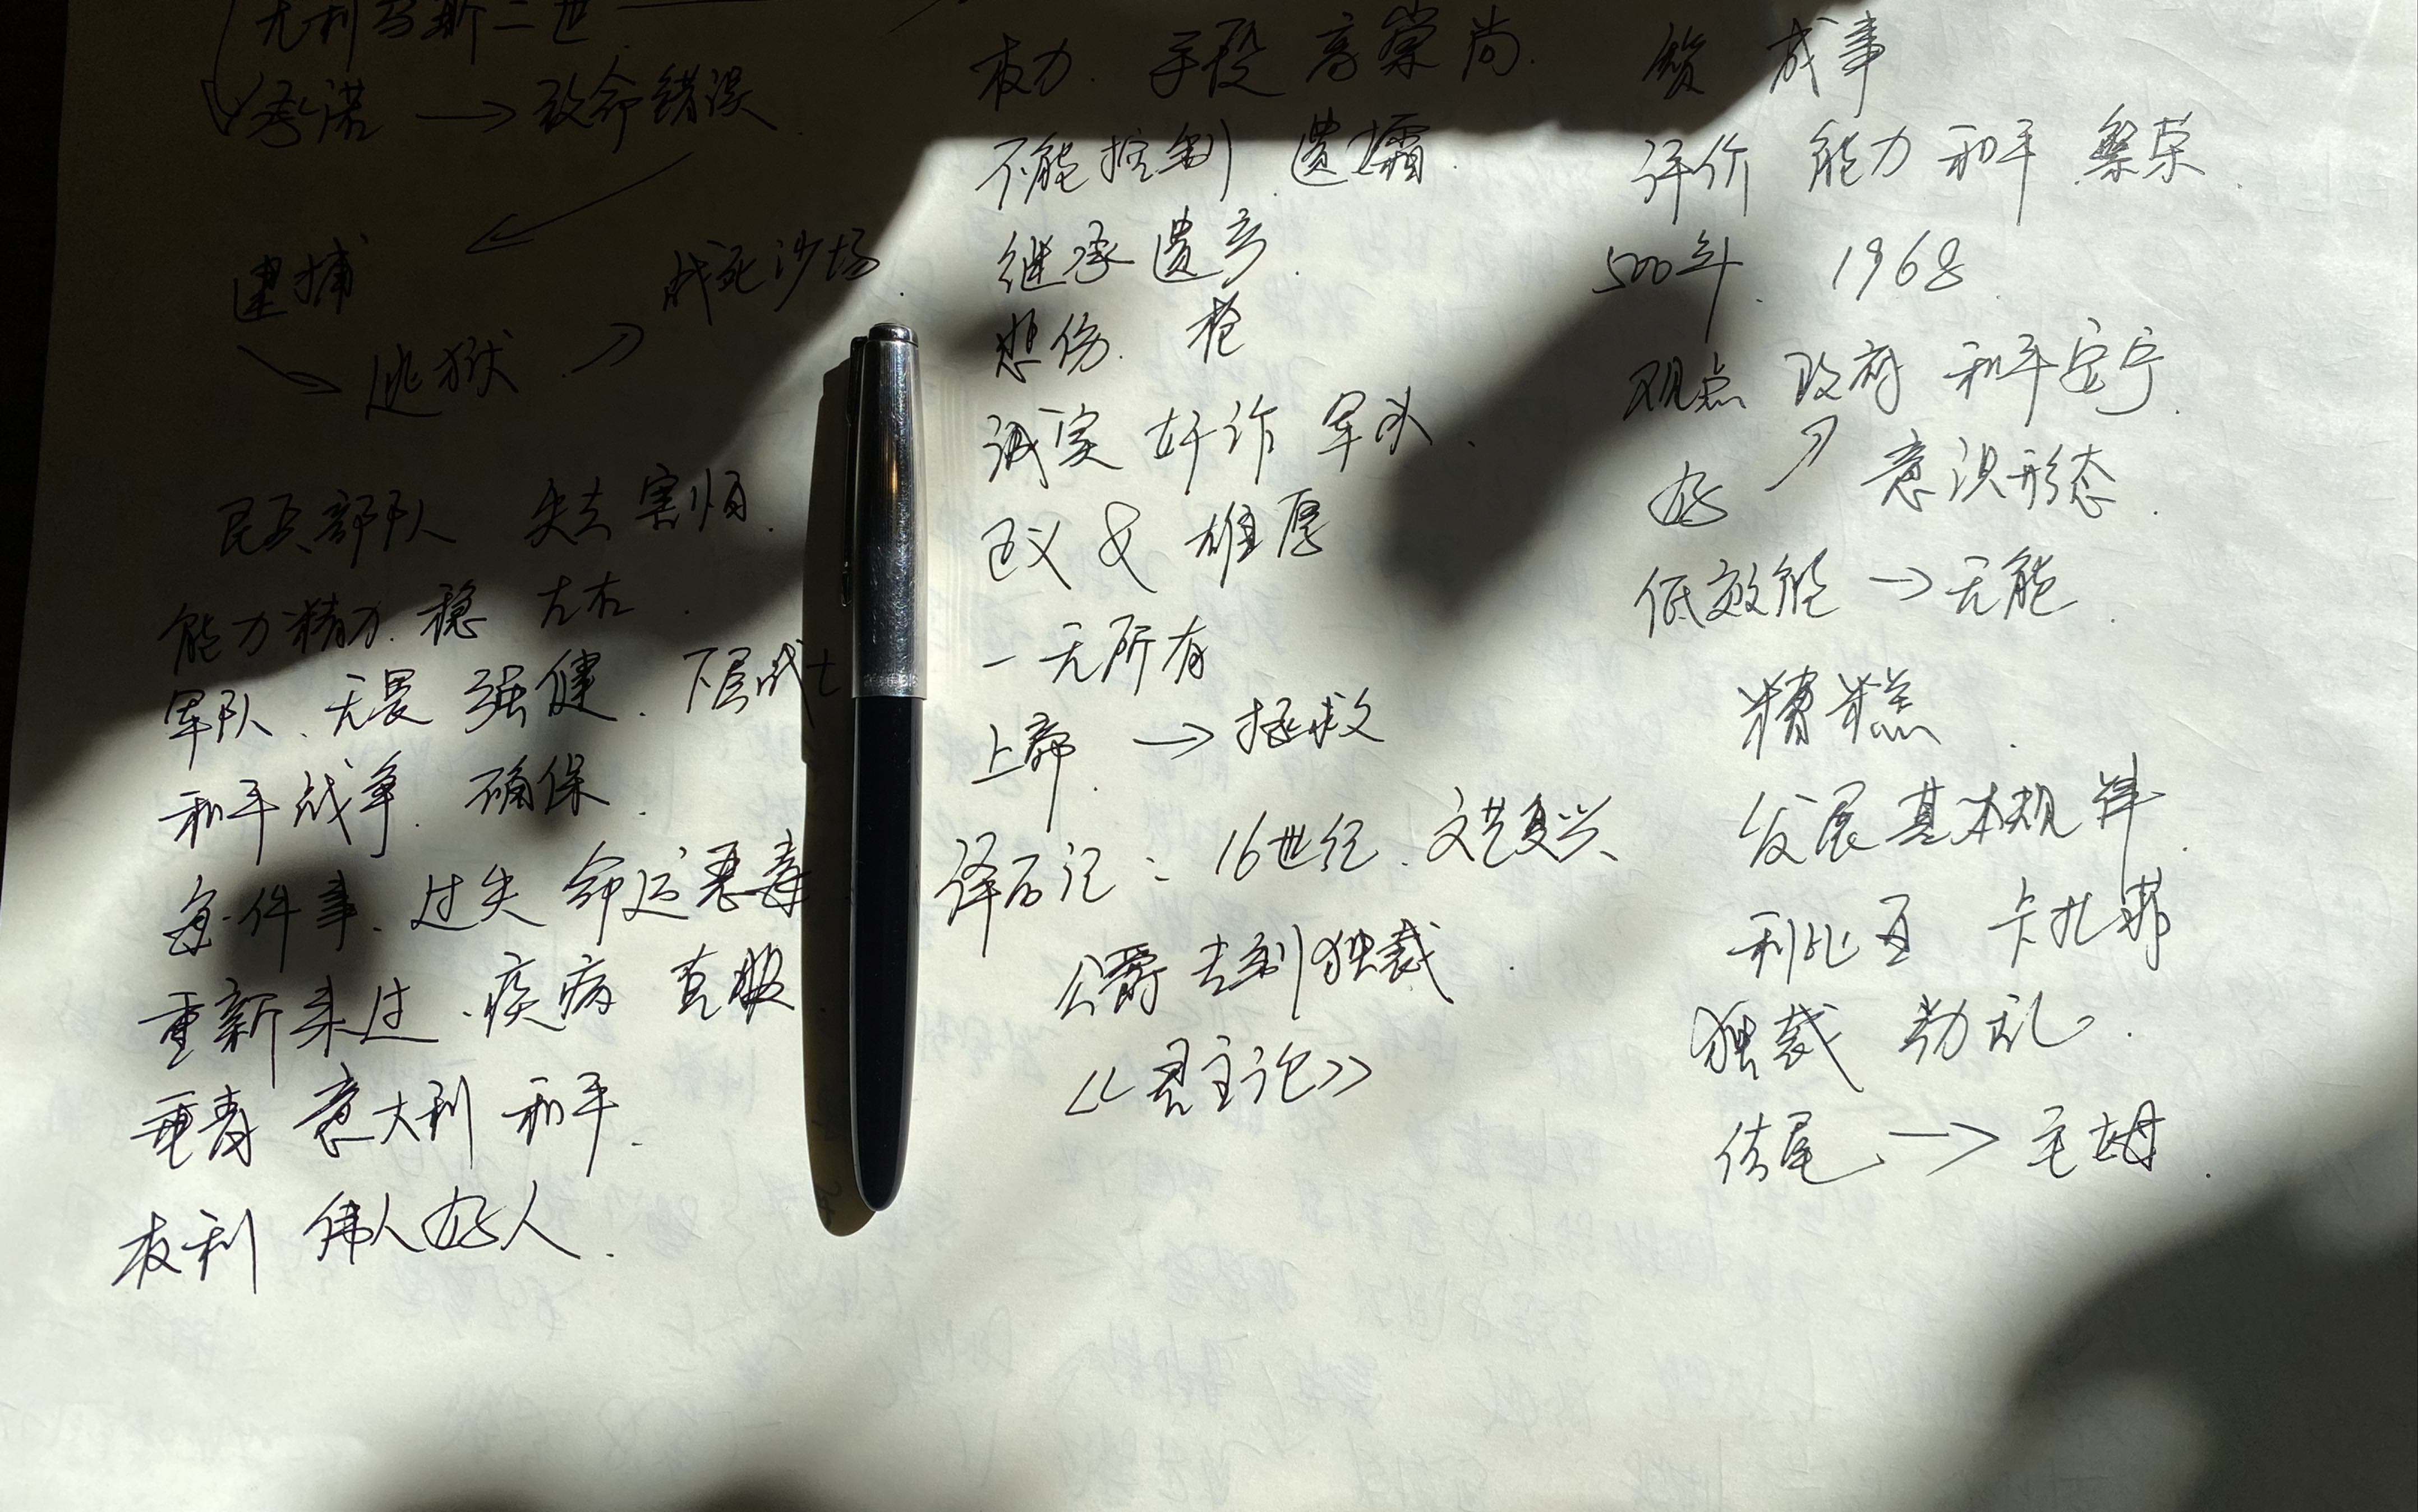 尤利乌斯二世
承诺 → 致命错误
逮捕
逃狱
战死沙场.
民兵部队 失去 害怕.
能力 精力. 稳 左右.
军队、无畏 强健、下层战士
和平战争. 确保.
每件事、过失 命运恶毒
重新来过、疾病
意大利 和平.
权利 伟人 好人.
权力. 手段 高崇尚.
不能控制 遗孀.
继承遗产.
悲伤. 枪
诚实 奸诈 军队.
雄厚
一无所有
上帝. → 拯救
译后记: 16世纪. 文艺复兴
公爵专制独裁
《君主论》
成事
评价 能力 和平 繁荣.
500年. 1968.
观点 政府 和平安宁.
好 意识形态.
低效能 → 无能.
糟糕.
发展基本规律.
利比亚 卡扎菲
独裁 动乱.
结尾 →